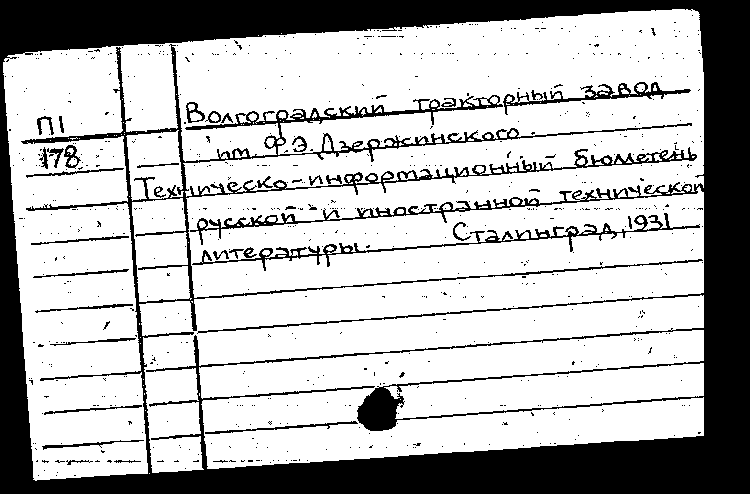 П1
178
Волгоградский тракторный завод
им. Ф.Э. Дзержинского.
Техническо-информационный бюллетень
русской и иностранной технической
литературы. Сталинград, 1931